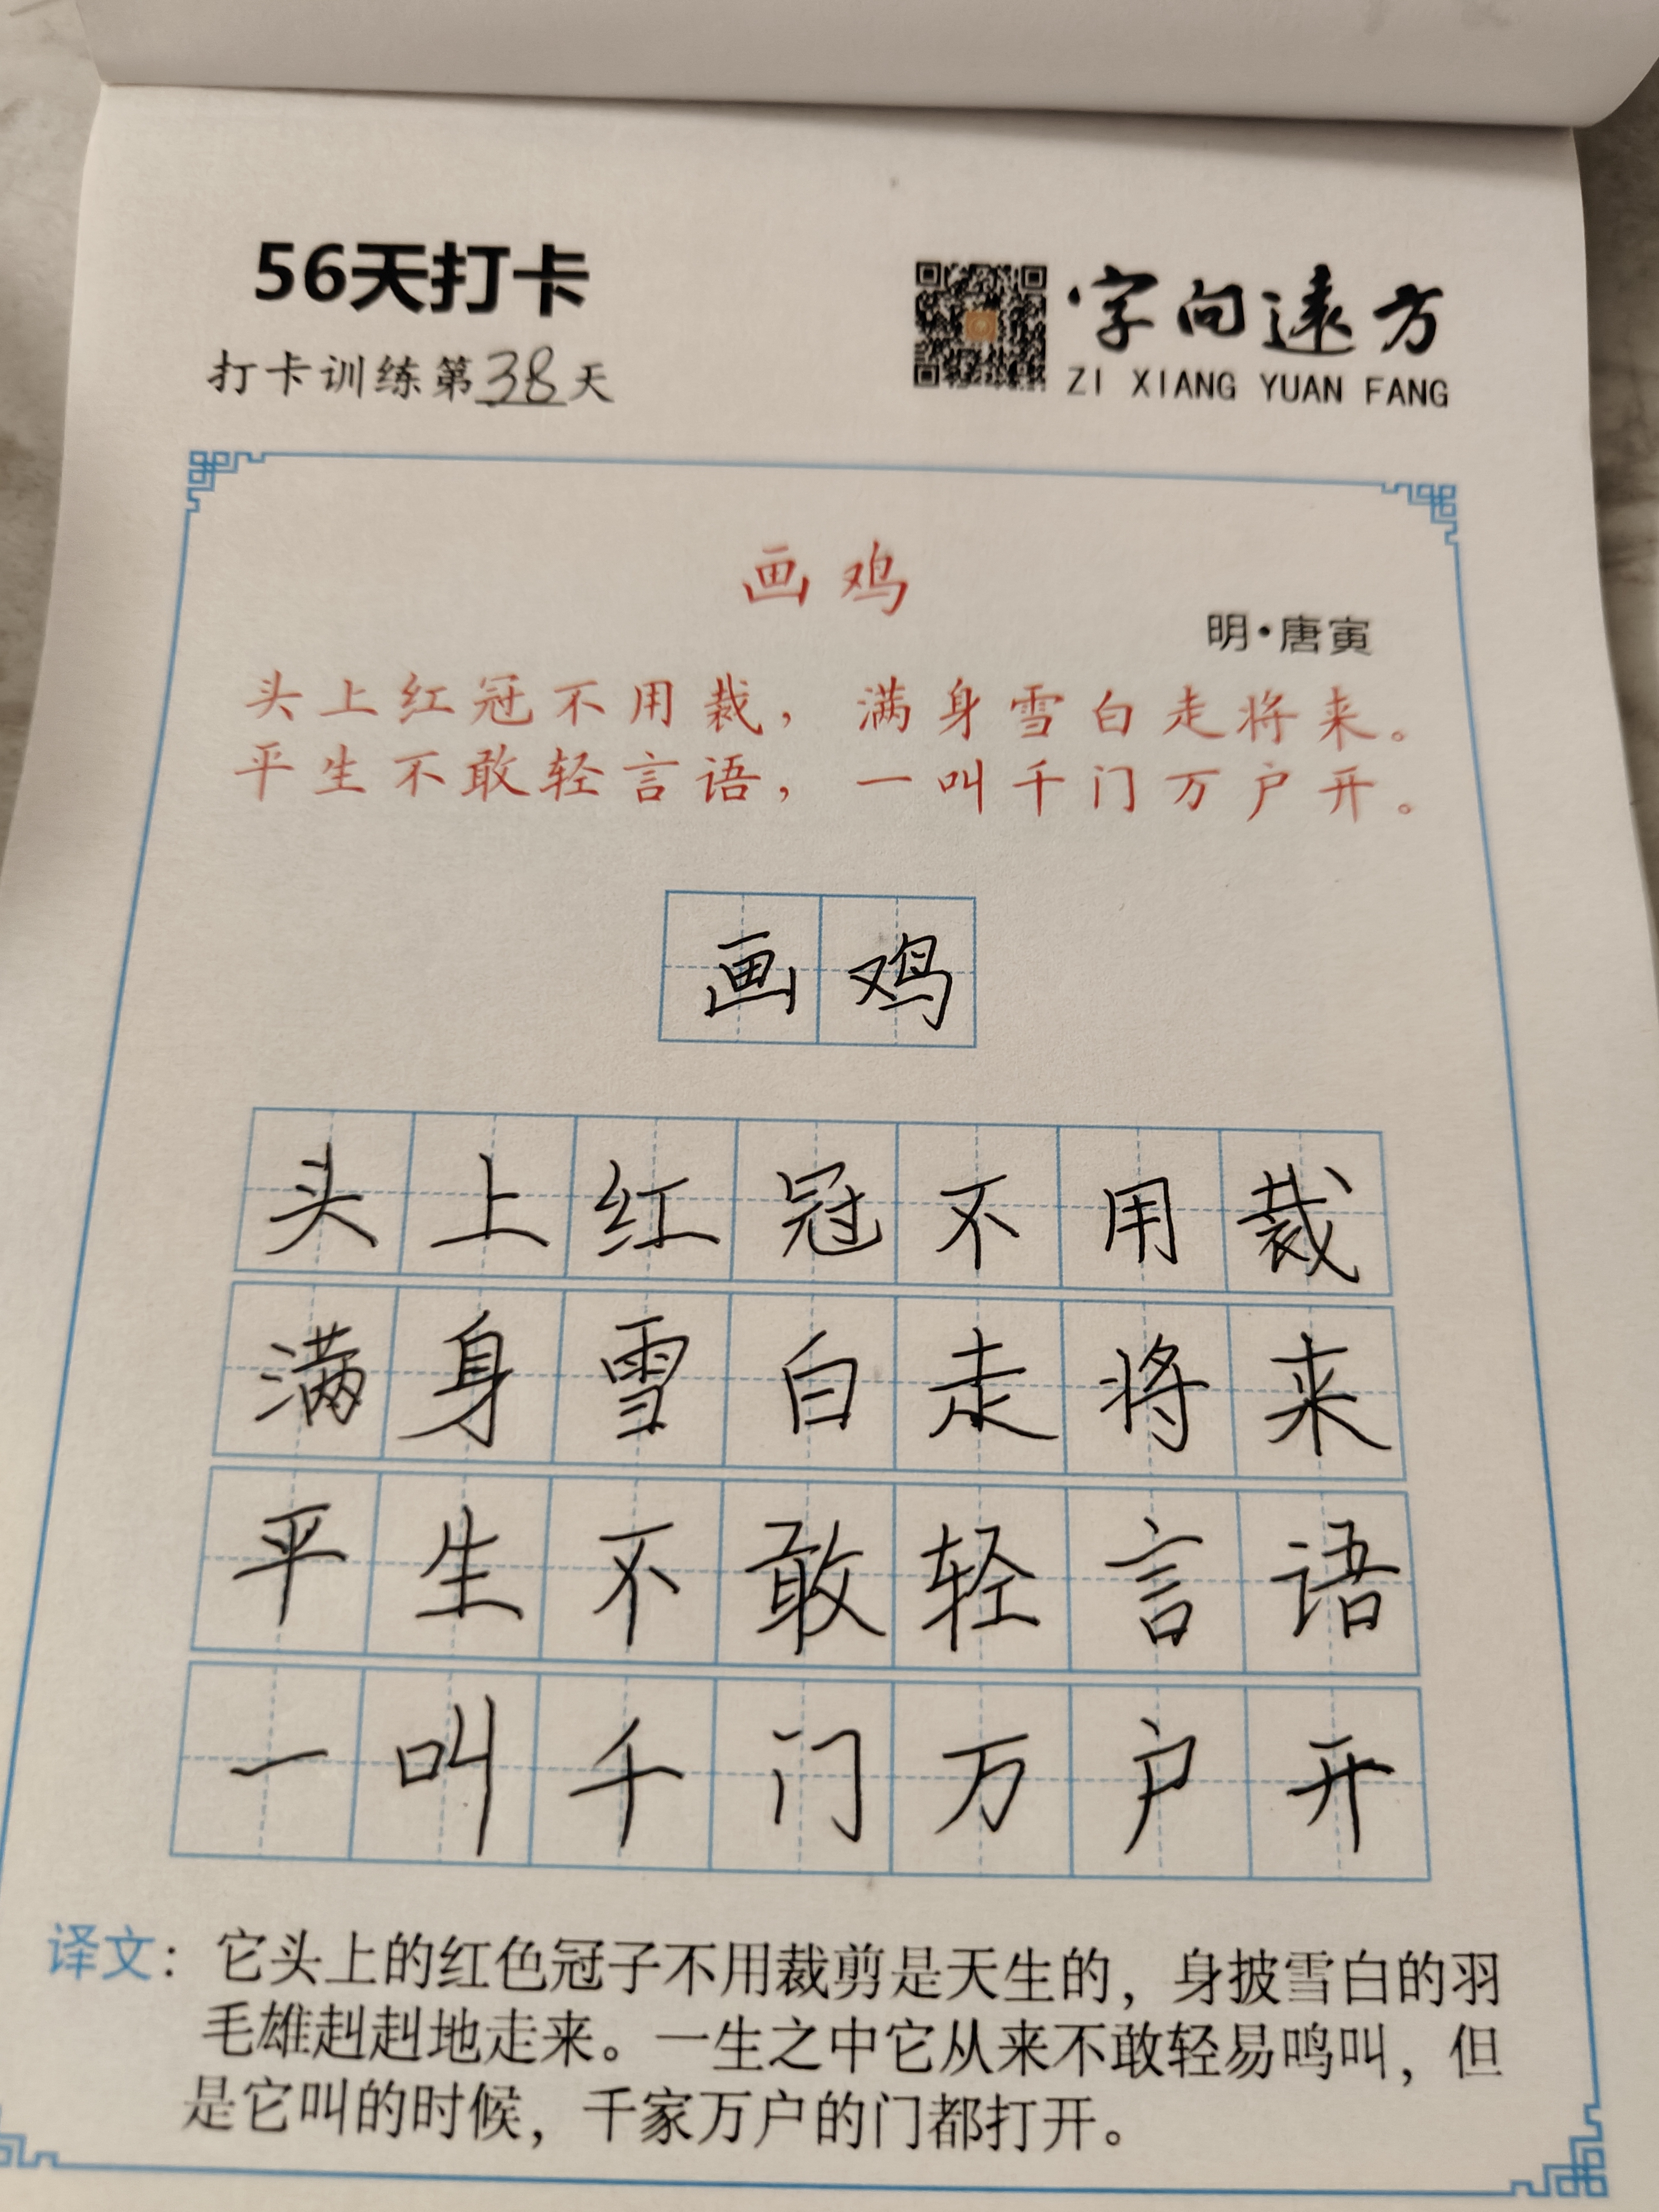 56天打卡
打卡训练第38天
字向遠方
ZI XIANG YUAN FANG
画鸡
明·唐寅
头上红冠不用裁，满身雪白走将来。
平生不敢轻言语，一叫千门万户开。
画鸡
头上红冠不用裁
满身雪白走将来
平生不敢轻言语
一叫千门万户开
译文：它头上的红色冠子不用裁剪是天生的，身披雪白的羽
毛雄赳赳地走来。一生之中它从来不敢轻易鸣叫，但
是它叫的时候，千家万户的门都打开。